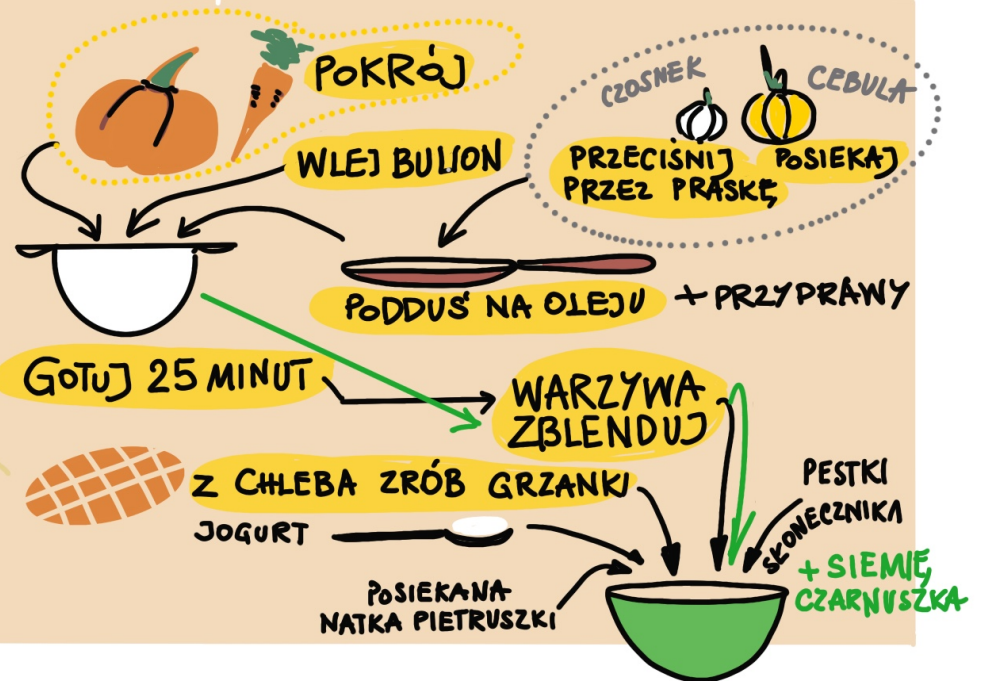 POKRÓJ
CZOSNEK
CEBULA
WLEJ BULION
PRZECIŚNIJ
PRZEZ PRASKĘ
POSIEKAJ
PODDUŚ NA OLEJU
+ PRZYPRAWY
GOTUJ 25 MINUT
WARZYWA
ZBLENDUJ
Z CHLEBA ZRÓB GRZANKI
PESTKI
SŁONECZNIKA
JOGURT
+ SIEMIĘ
CZARNUSZKA
POSIEKANA
NATKA PIETRUSZKI